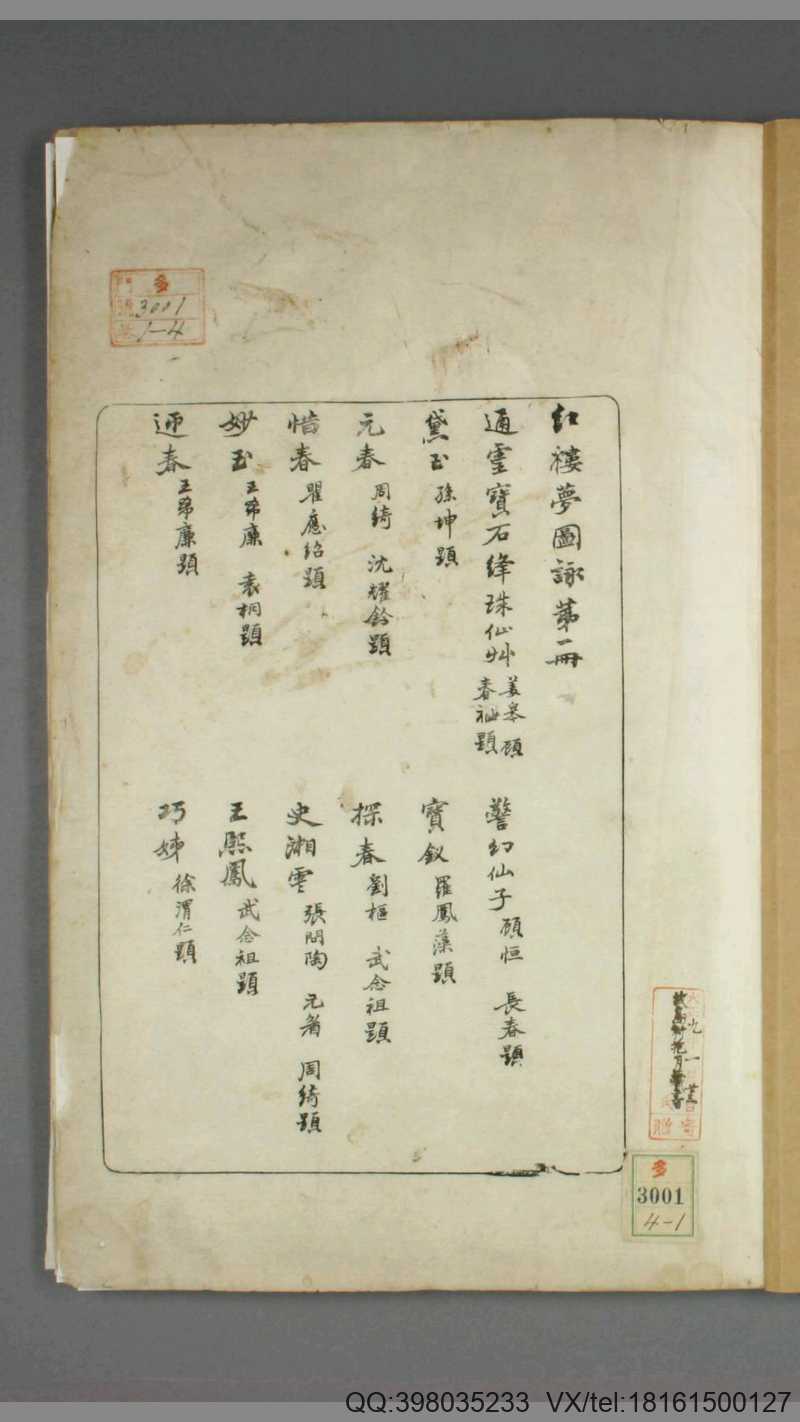 紅樓夢圖詠第一冊
通靈寶石絳珠仙艸 姜皋 顧春福題
警幻仙子 顧恒 長春題
黛玉 孫坤題
寶釵 羅鳳藻題
元春 周綺 沈燿鋡題
探春 劉樞 武念祖題
惜春 瞿應紹題
史湘雲 張問陶 周綺題
妙玉 王希廉 袁桐題
王熙鳳 武念祖題
迎春 王希廉題
巧姊 徐渭仁題
多
3001
1-4
寄
贈
多
3001
4-1
QQ:398035233 VX/tel:18161500127